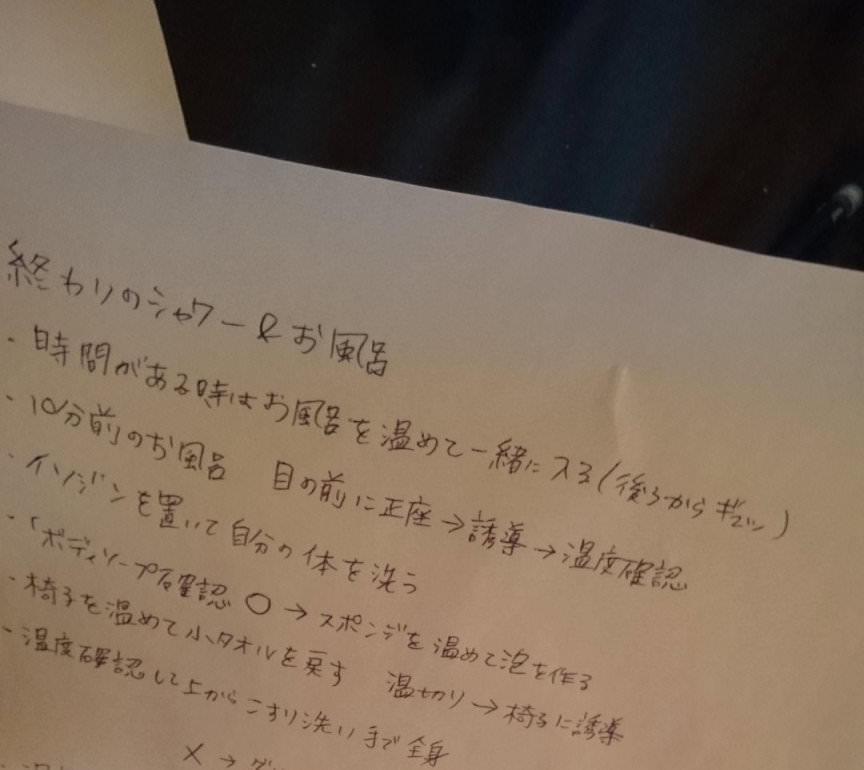 終わりのシャワー&お風呂
・時間がある時はお風呂を温めて一緒に入る(後ろからギュッ)
・10分前のお風呂 目の前に正座→誘導→温度確認
・イソジンを置いて自分の体を洗う
・「ボディソープ確認 ○→スポンジを温めて泡を作る
・椅子を温めて小タオルを戻す 温切り→椅子に誘導
・温度確認して上からこすり洗い手で全身
×→